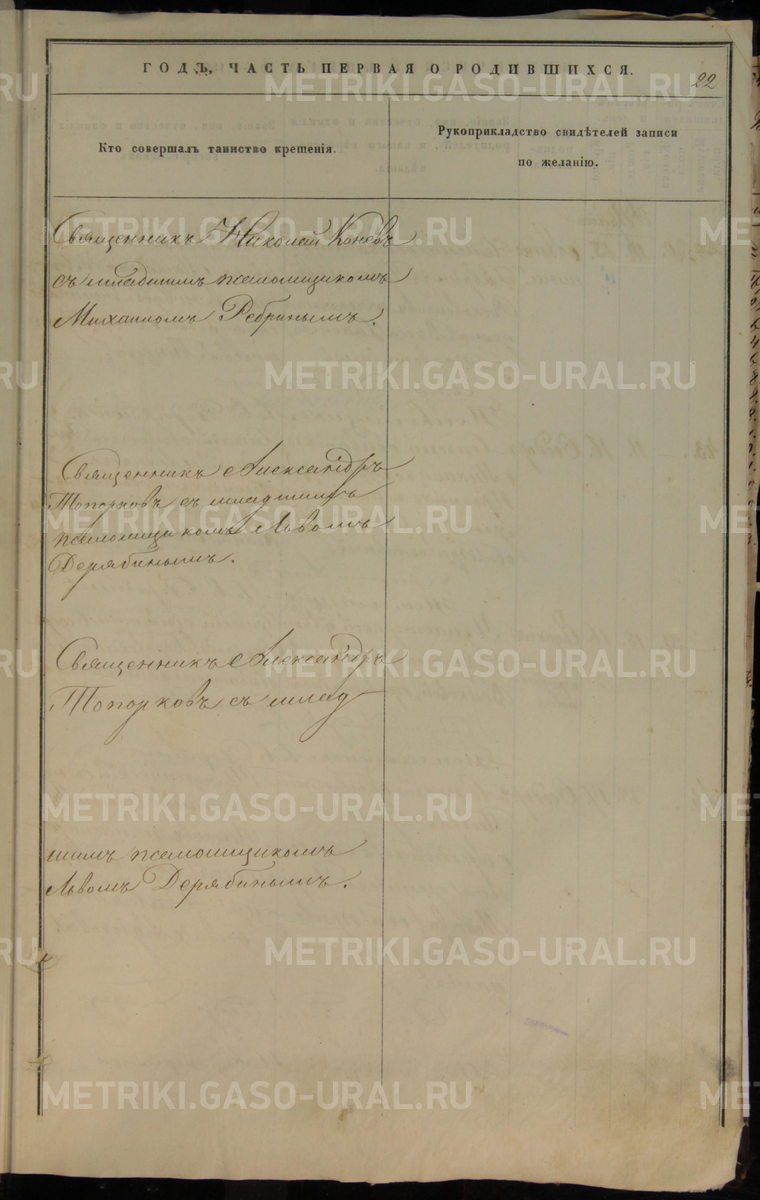 ГОДЪ, ЧАСТЬ ПЕРВАЯ О РОДИВШИХСЯ.
22
Кто совершалъ таинство крещенія.
Рукоприкладство свидѣтелей записи
по желанію.
Священникъ Николай Коневъ
съ младшимъ псаломщикомъ
Михаиломъ Ребринымъ.
Священникъ Александръ
Топорковъ съ младшимъ
псаломщикомъ Львомъ
Дерябинымъ.
Священникъ Александръ
Топорковъ съ млад
шимъ псаломщикомъ
Львомъ Дерябинымъ.
METRIKI.GASO-URAL.RU